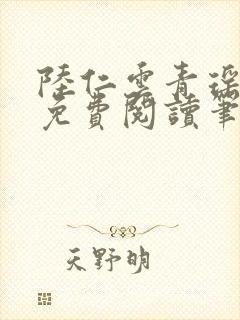 陸仁雲青瑶
免費閱讀筆
天野明